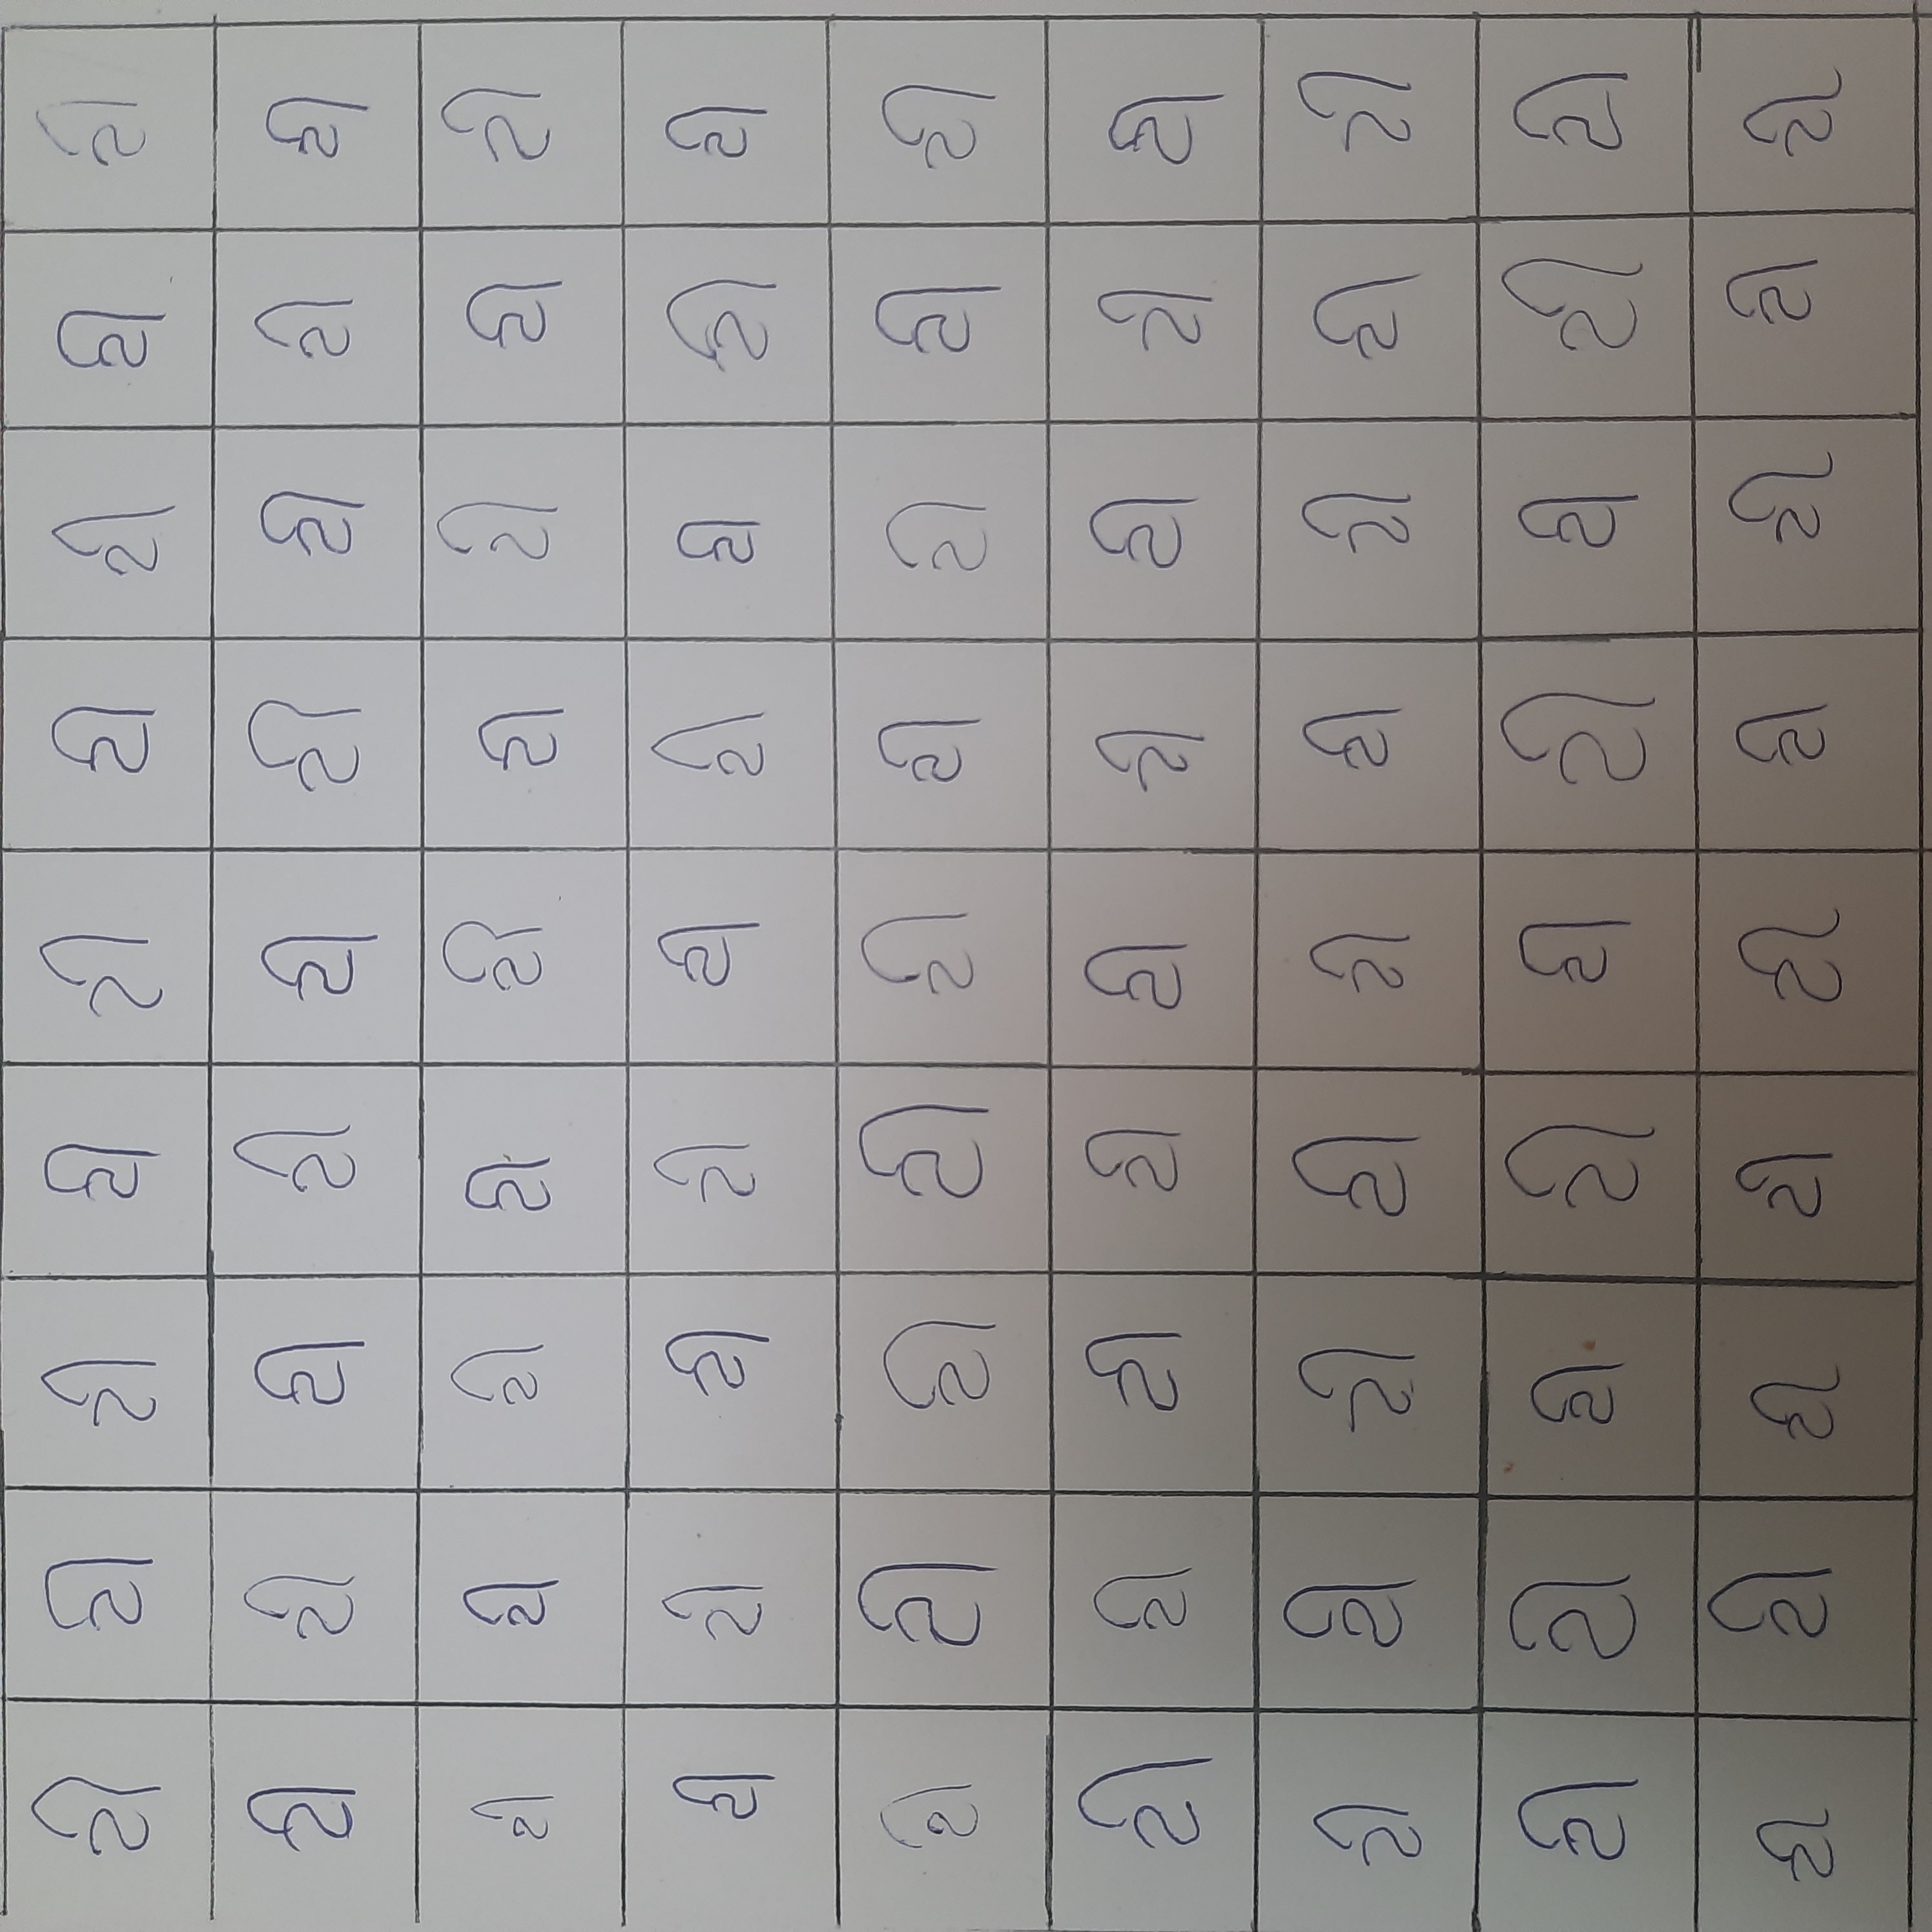 ટી ટી ટી ટી ટી ટી ટી ટી ટી
ટી ટી ટી ટી ટી ટી ટી ટી ટી
ટી ટી ટી ટી ટી ટી ટી ટી ટી
ટી ટી ટી ટી ટી ટી ટી ટી ટી
ટી ટી ટી ટી ટી ટી ટી ટી ટી
ટી ટી ટી ટી ટી ટી ટી ટી ટી
ટી ટી ટી ટી ટી ટી ટી ટી ટી
ટી ટી ટી ટી ટી ટી ટી ટી ટી
ટી ટી ટી ટી ટી ટી ટી ટી ટી